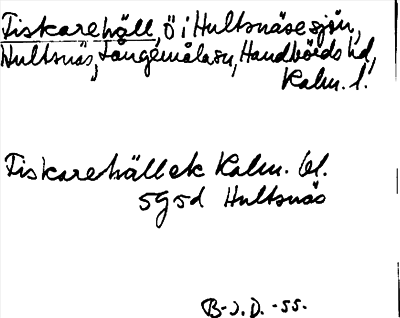 Fiskarehäll, ö i Hultsnäsesjön,
Hultsnäs, Långemålasn, Handbörds hd,
Kalm. l.
Fiskarehäll ek Kalm. bl.
5g5d Hultsnäs
B-J. D. -55.